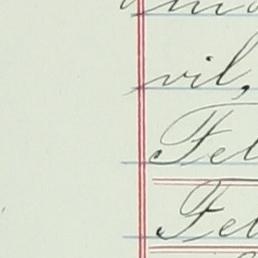 vil,
Fel
Fel